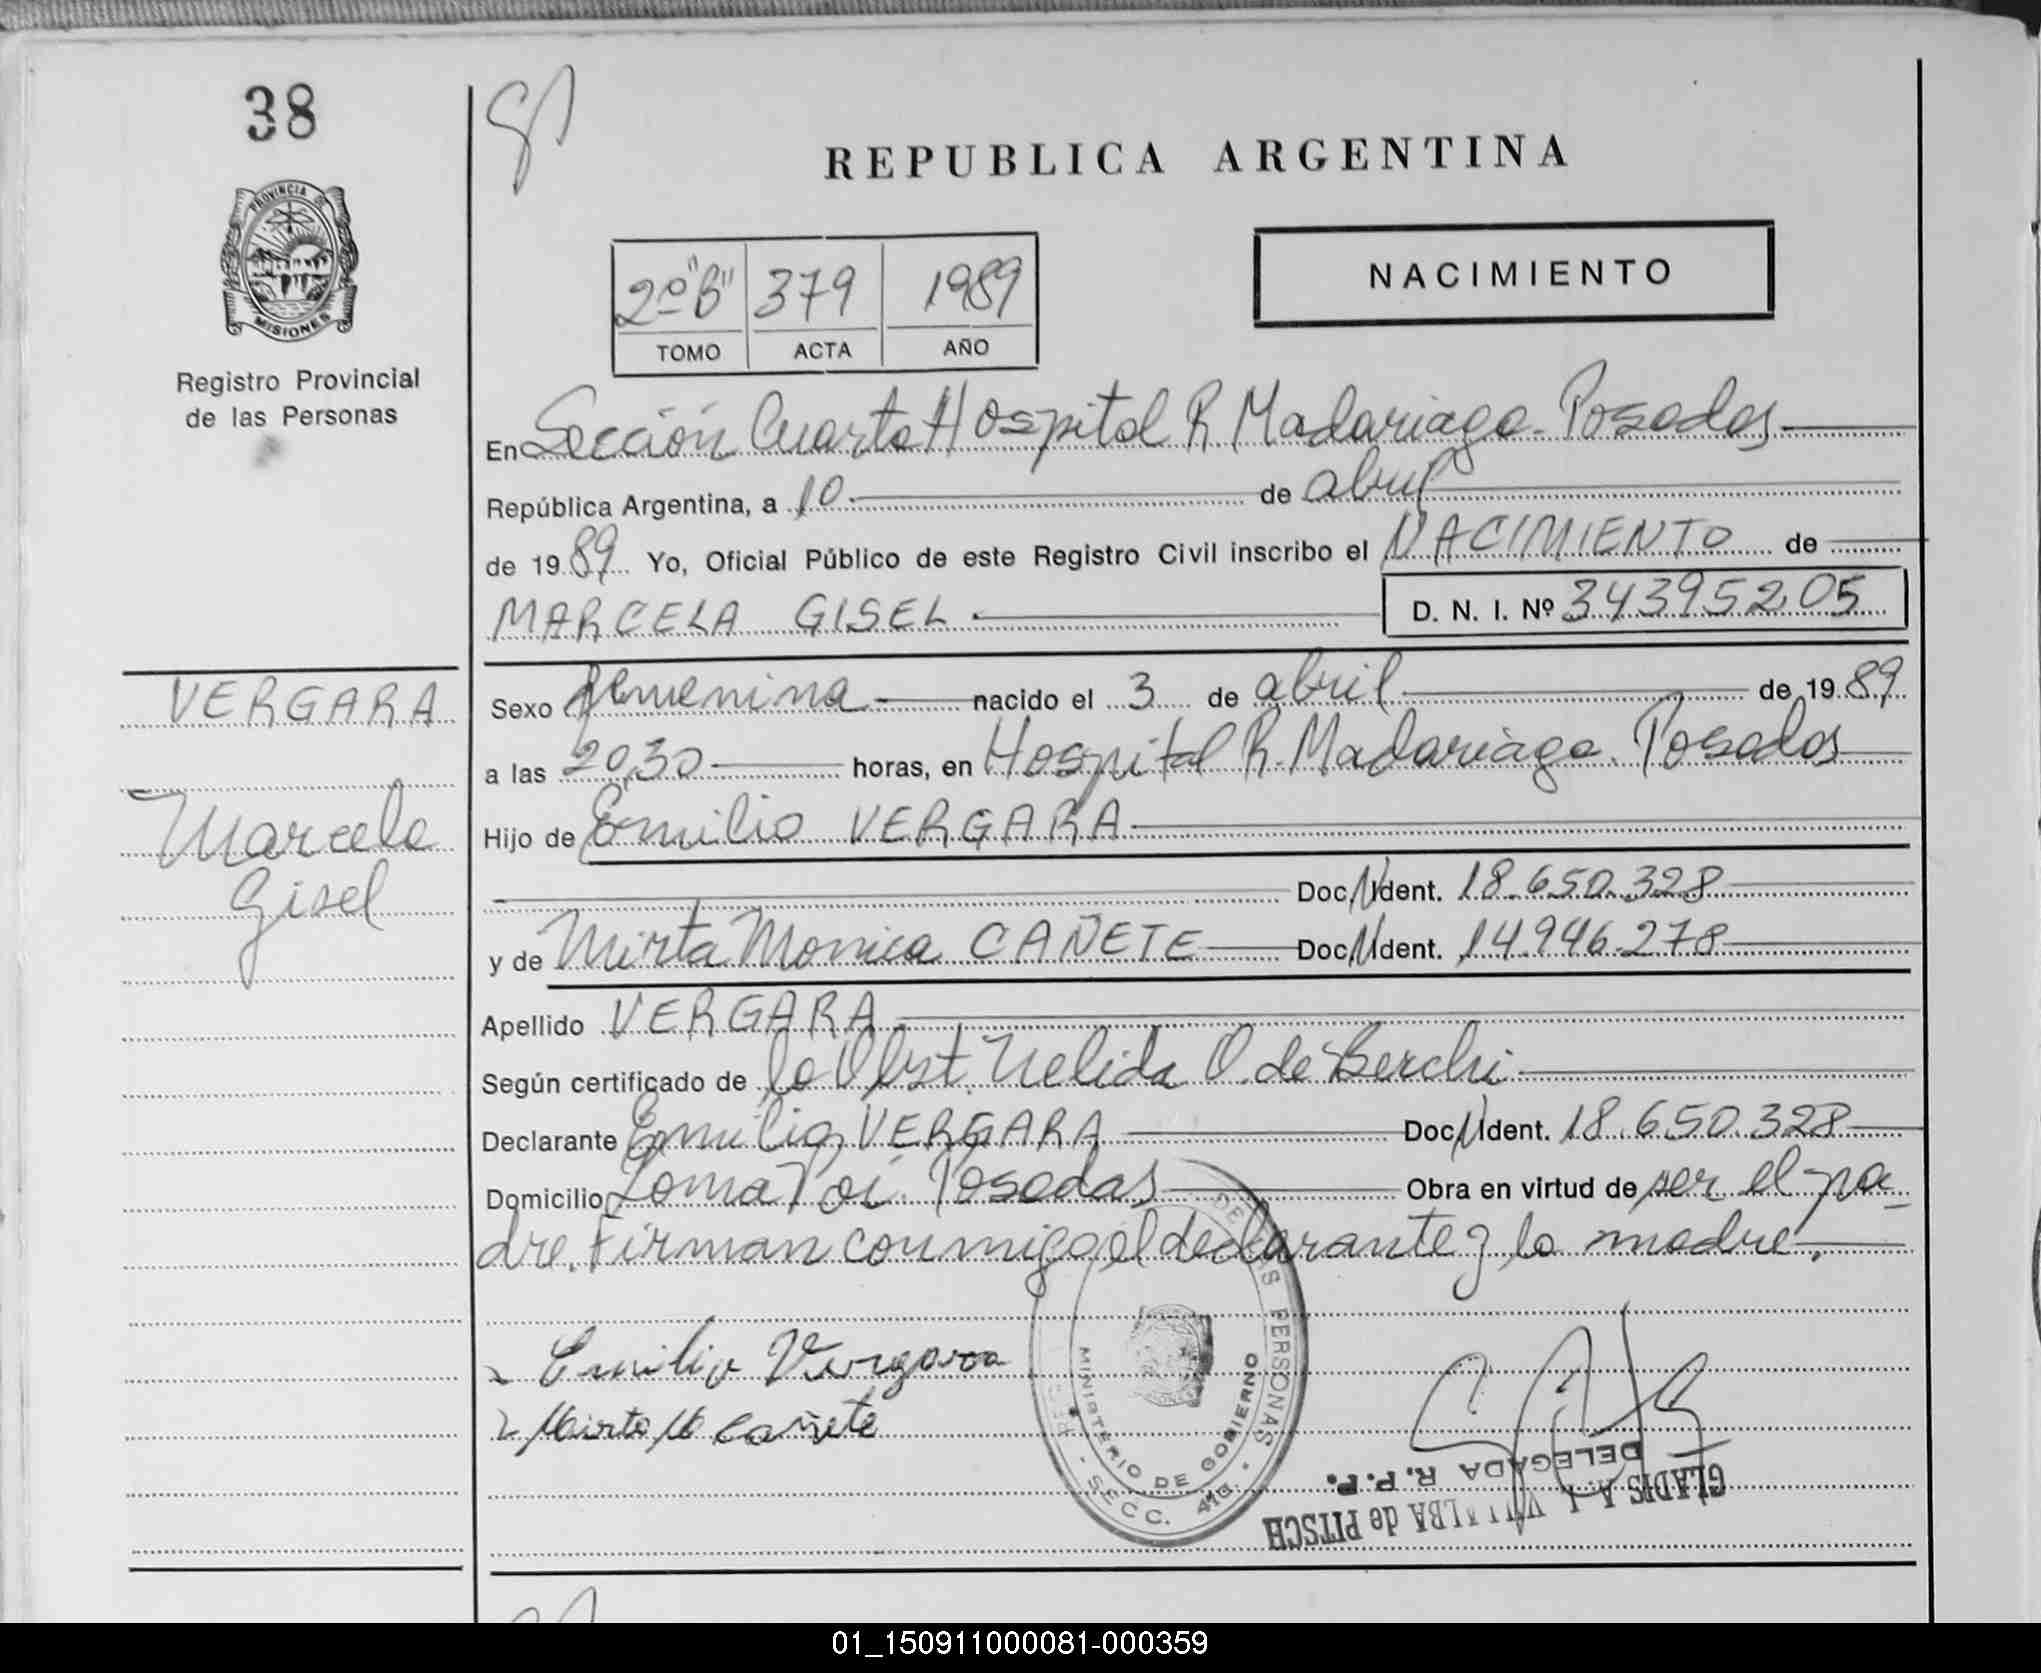 38
PROVINCIA DE
MISIONES
Registro Provincial
de las Personas
REPUBLICA ARGENTINA
2º "B" 379 1989
TOMO ACTA AÑO
NACIMIENTO
En Sección Cuarta Hospital R Madariaga - Posadas
República Argentina, a 10 de abril
de 1989 Yo, Oficial Público de este Registro Civil inscribo el NACIMIENTO de
MARCELA GISEL D. N. I. Nº 34395205
VERGARA
Marcela
Gisel
Sexo femenina nacido el 3 de abril de 1989
a las 20,30 horas, en Hospital R. Madariaga. Posadas
Hijo de Emilio VERGARA
Doc N Ident. 18.650.328
y de Mirta Monica CAÑETE Doc N Ident. 14.946.278
Apellido VERGARA
Según certificado de la Obst. Nelida O. de Berchi
Declarante Emilio VERGARA Doc N Ident. 18.650.328
Domicilio Loma Poi. Posadas Obra en virtud de ser el pa-
dre. Firman conmigo el declarante y la madre.
Emilio Vergara
Mirta M Cañete
DE LAS PERSONAS
MINISTERIO DE GOBIERNO
SECC. 4ta.
GLADIS A. I. VILLALBA de PITSCH
DELEGADA R. P. P.
01_150911000081-000359